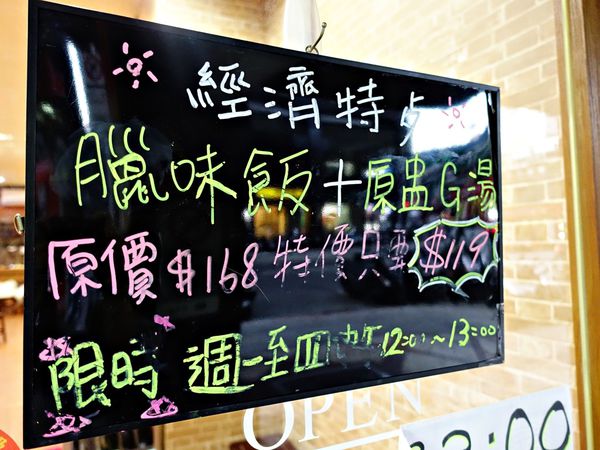 經濟特步
臘味飯+原盅G湯
原價$168 特價只要 $119
限時 週一至四 12:00~13:00
OPEN
:00